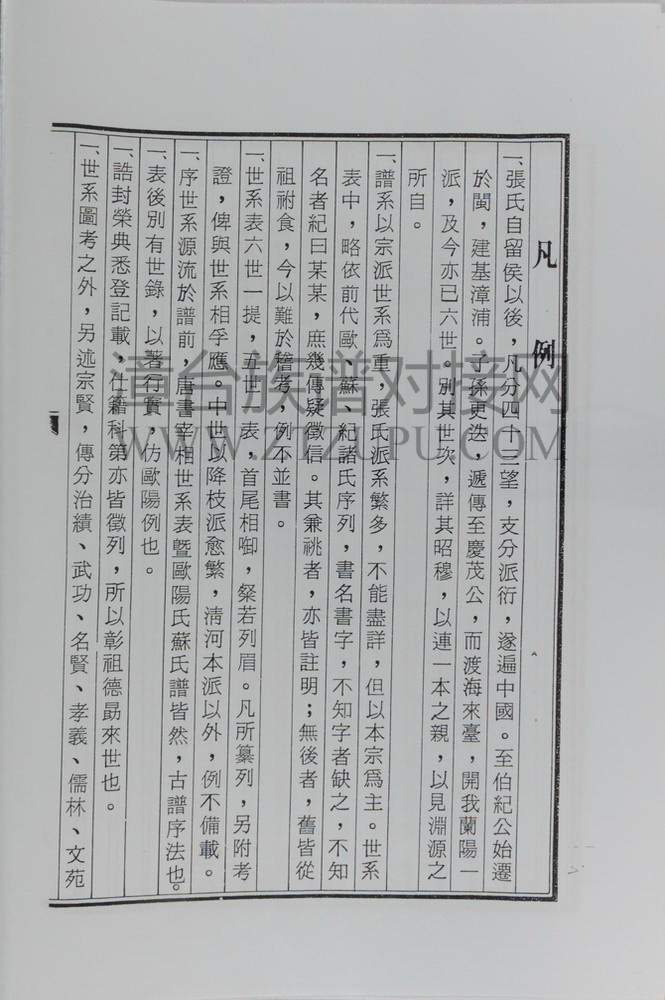 凡例
一、張氏自留侯以後，凡分四十三望，支分派衍，遂遍中國。至伯紀公始遷
於閩，建基漳浦。子孫更迭，遞傳至慶茂公，而渡海來臺，開我蘭陽一
派，及今亦已六世。別其世次，詳其昭穆，以連一本之親，以見淵源之
所自。
一、譜系以宗派世系爲重，張氏派系繁多，不能盡詳，但以本宗爲主。世系
表中，略依前代歐、蘇、紀諸氏序列，書名書字，不知字者缺之，不知
名者紀曰某某，庶幾傳疑徵信。其兼祧者，亦皆註明；無後者，舊皆從
祖祔食，今以難於稽考，例不並書。
一、世系表六世一提，五世一表，首尾相啣，粲若列眉。凡所纂列，另附考
證，俾與世系相孚應。中世以降枝派愈繁，淸河本派以外，例不備載。
一、序世系源流於譜前，唐書宰相世系表曁歐陽氏蘇氏譜皆然，古譜序法也。
一、表後別有世錄，以著行實，仿歐陽例也。
一、誥封榮典悉登記載，仕籍科第亦皆徵列，所以彰祖德勗來世也。
一、世系圖考之外，另述宗賢，傳分治績、武功、名賢、孝義、儒林、文苑
漳台族谱对接网
WWW.ZTZUPU.COM